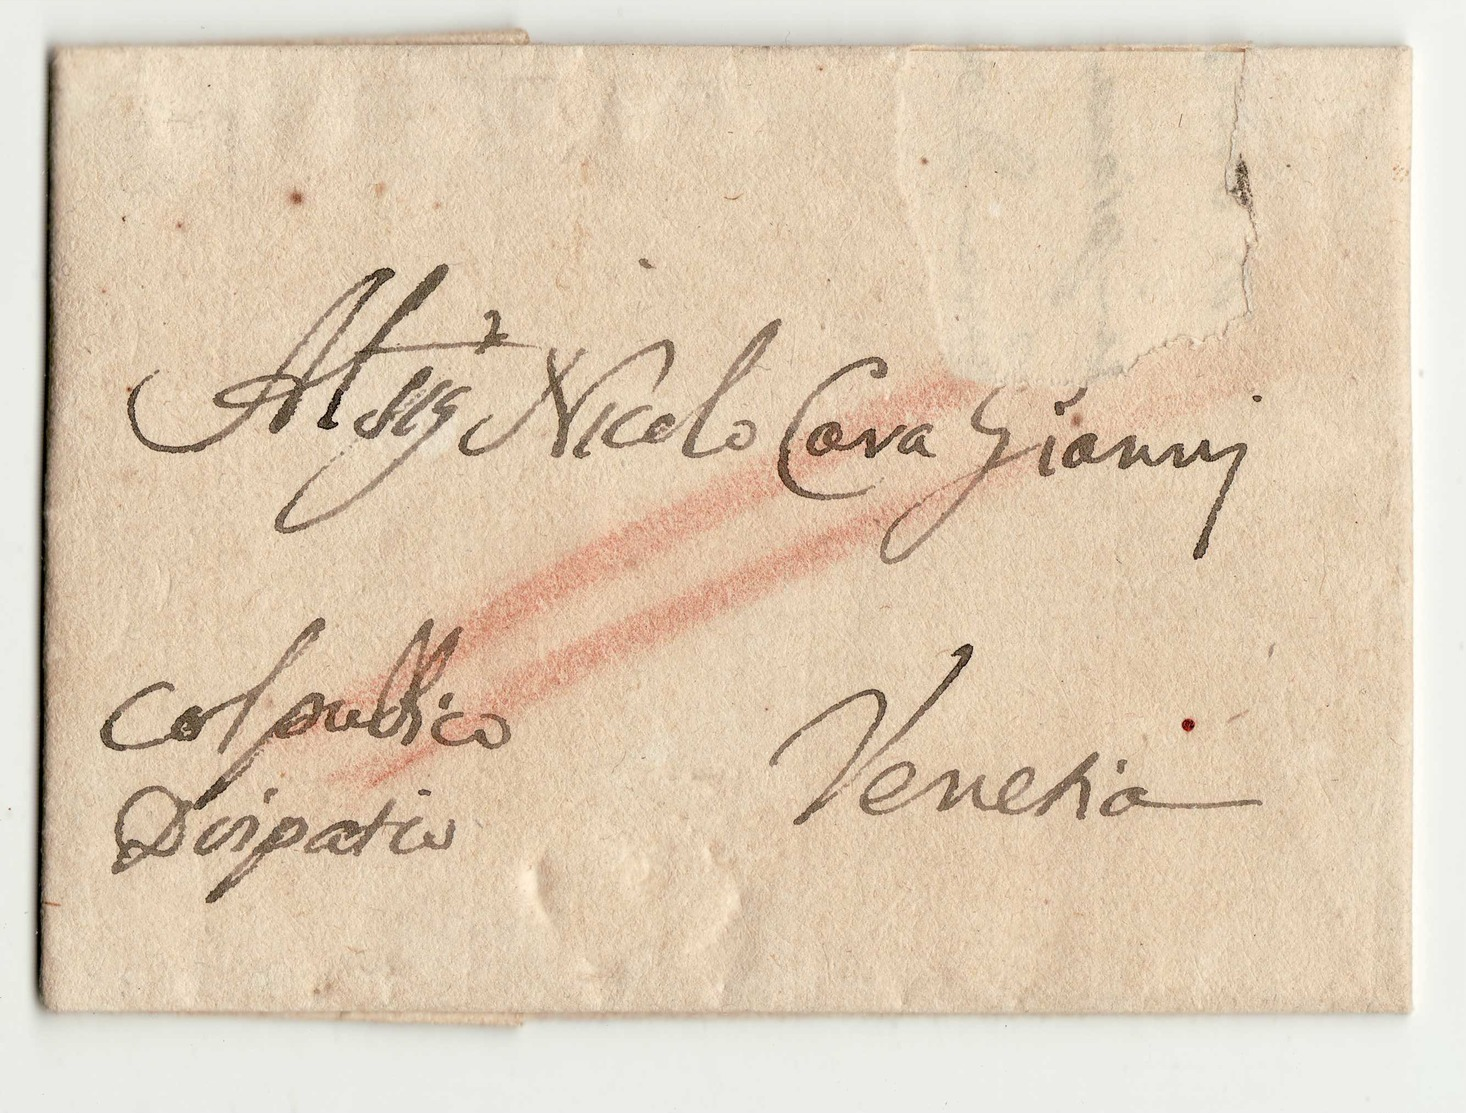 Al Sig.r Nicolo Cava Giannj
Col publico
Dispatio
Venetia